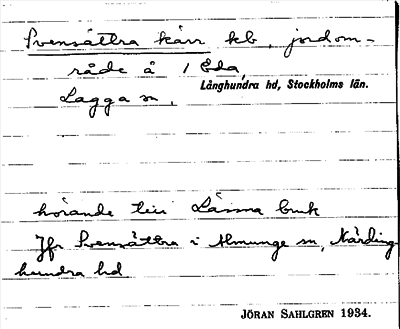 Svensättra kärr kb, jordom-
råde å / Eda,
Långhundra hd, Stockholms län.
Lagga sn,
hörande till Länna bruk
Jfr Svensättra i Almunge sn, Närding-
hundra hd
JÖRAN SAHLGREN 1934.